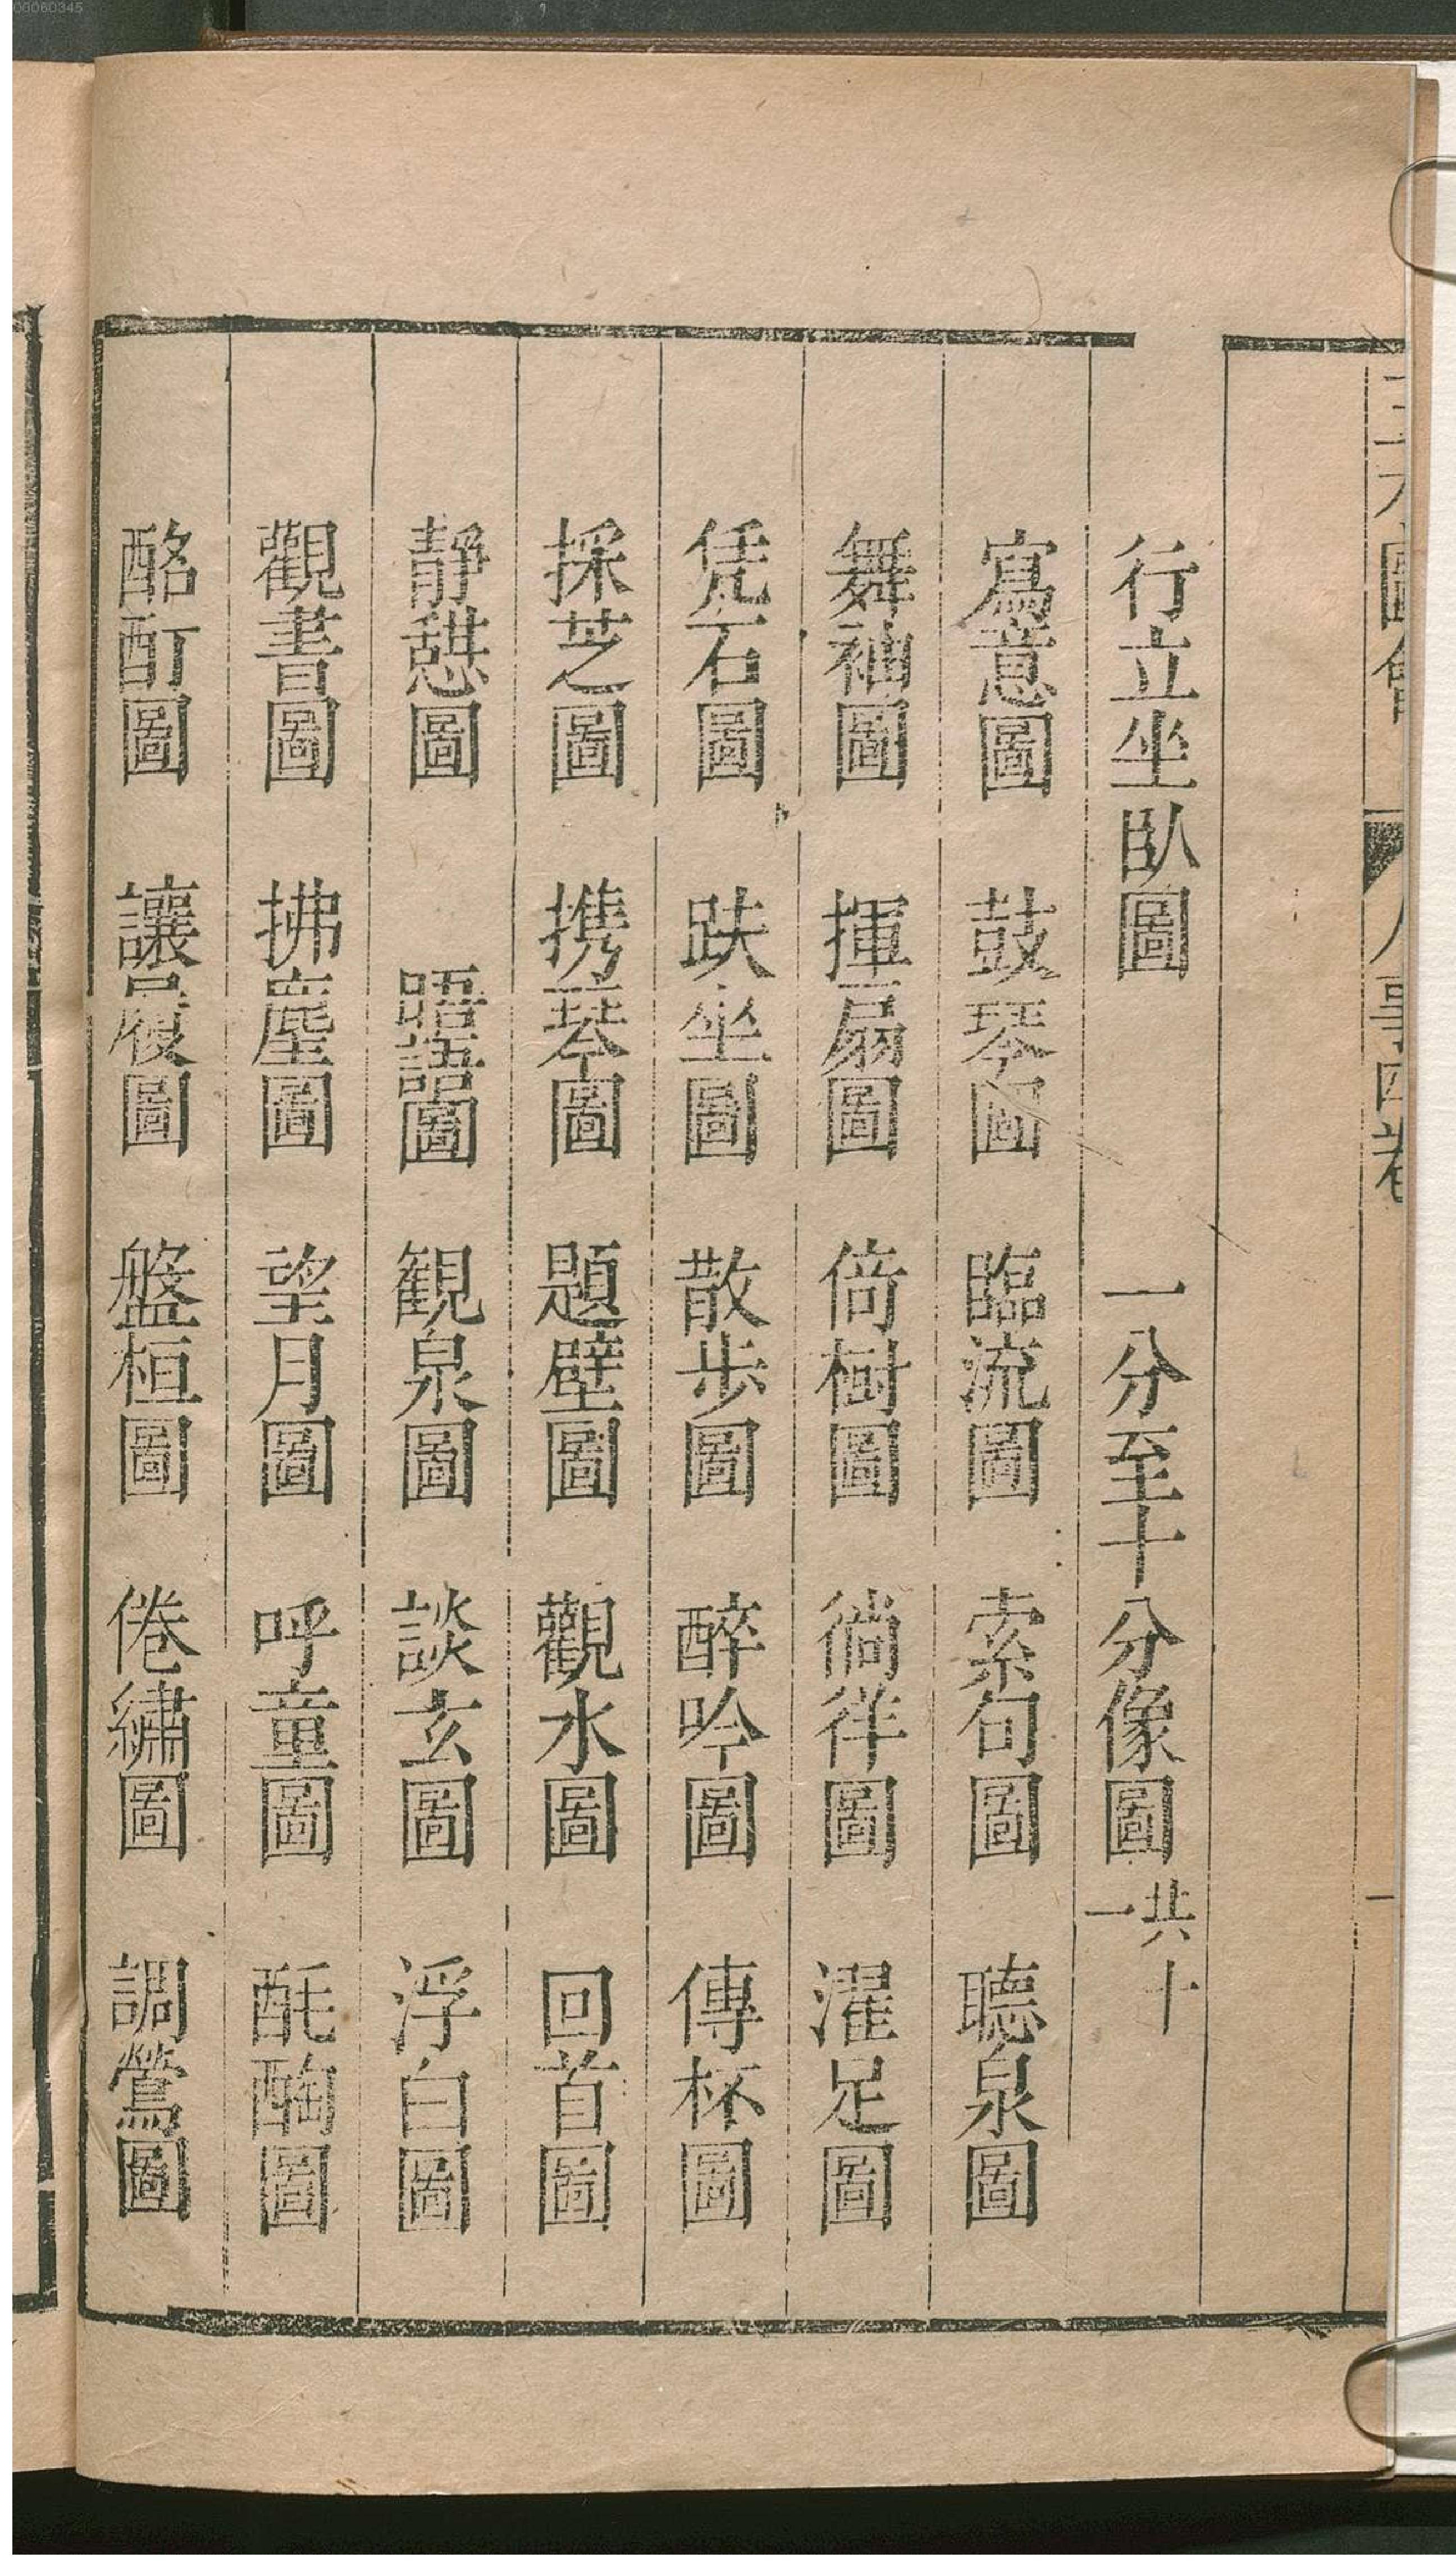 00060345
三才圖會 人事四卷 一
行立坐臥圖 一分至十分像圖 共十一
寫意圖 鼓琴圖 臨流圖 索句圖 聽泉圖
舞袖圖 揮扇圖 倚樹圖 徜徉圖 濯足圖
凭石圖 趺坐圖 散步圖 醉吟圖 傳杯圖
採芝圖 携琴圖 題壁圖 觀水圖 回首圖
靜憇圖 晤語圖 観泉圖 談玄圖 浮白圖
觀書圖 拂塵圖 望月圖 呼童圖 酕醄圖
酩酊圖 讓履圖 盤桓圖 倦繡圖 調鶯圖